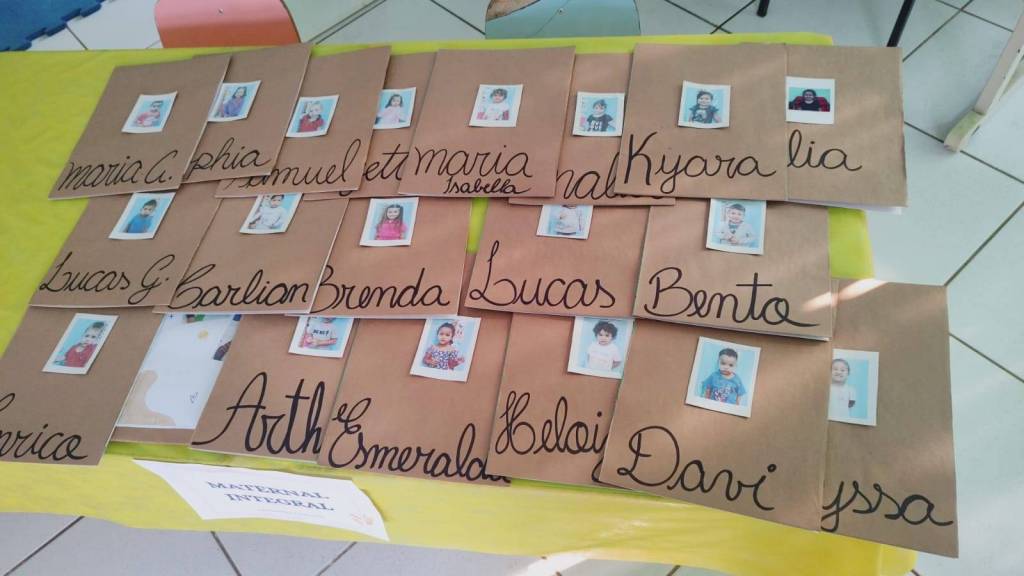 maria G.
phia
amuel
ett
maria
Isabella
nal
Kyara
lia
Lucas G.
Carlian
Brenda
Lucas
Bento
nrico
Arth
Esmeralda
Heloi
Davi
yssa
MATERNAL
INTEGRAL